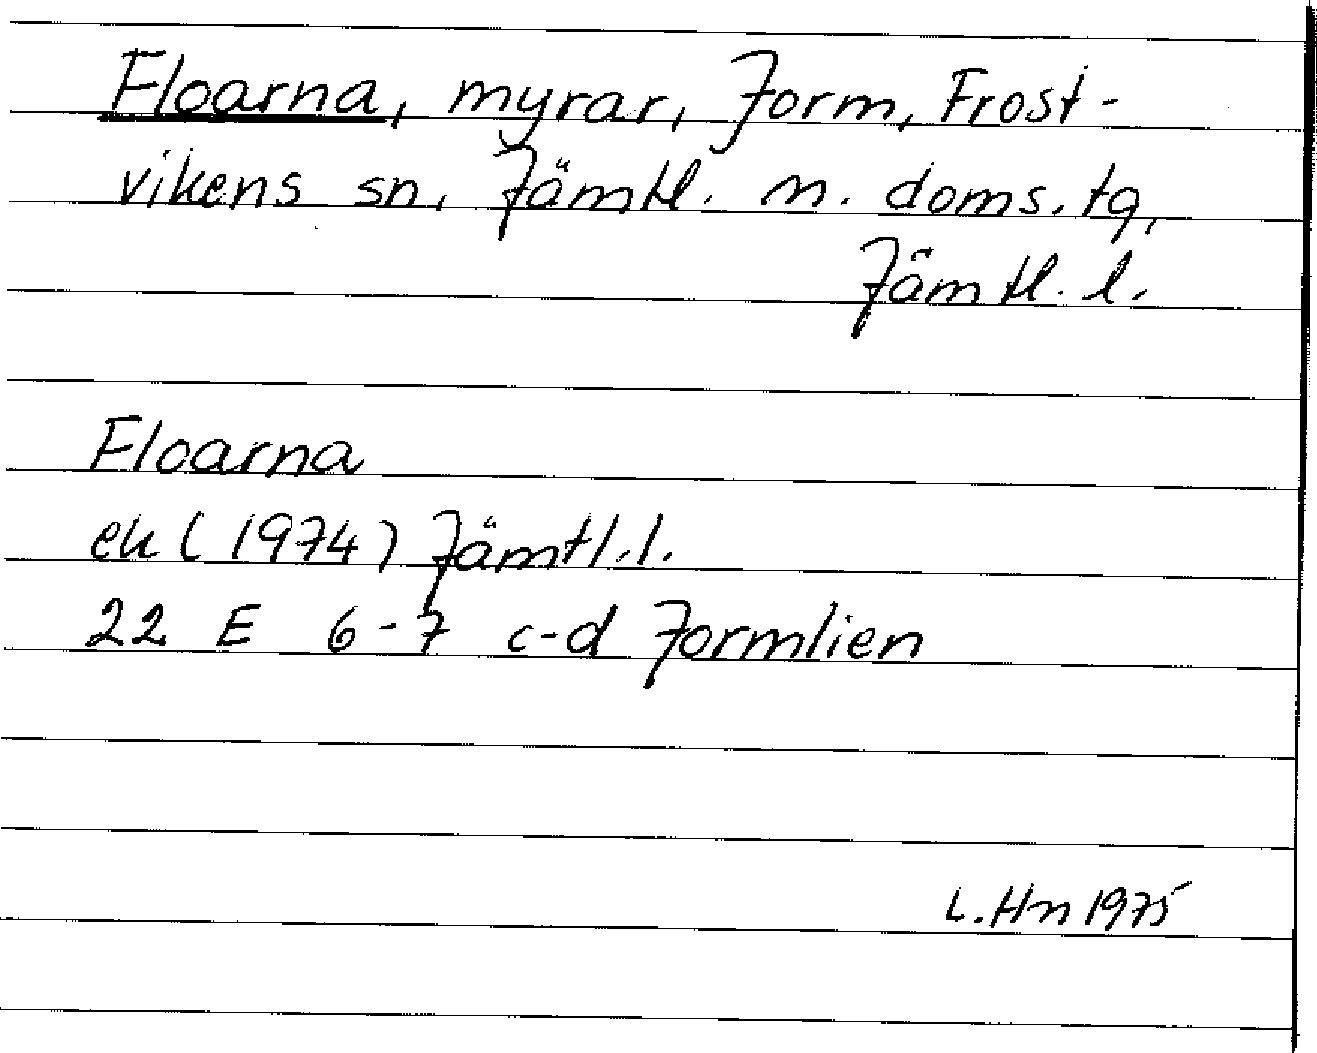 Floarna, myrar, Jorm, Frost-
vikens sn, Jämtl. n. doms. tg,
Jämtl. l.
Floarna
ek (1974) Jämtl. l.
22 E 6-7 c-d Jormlien
L. Hn 1975